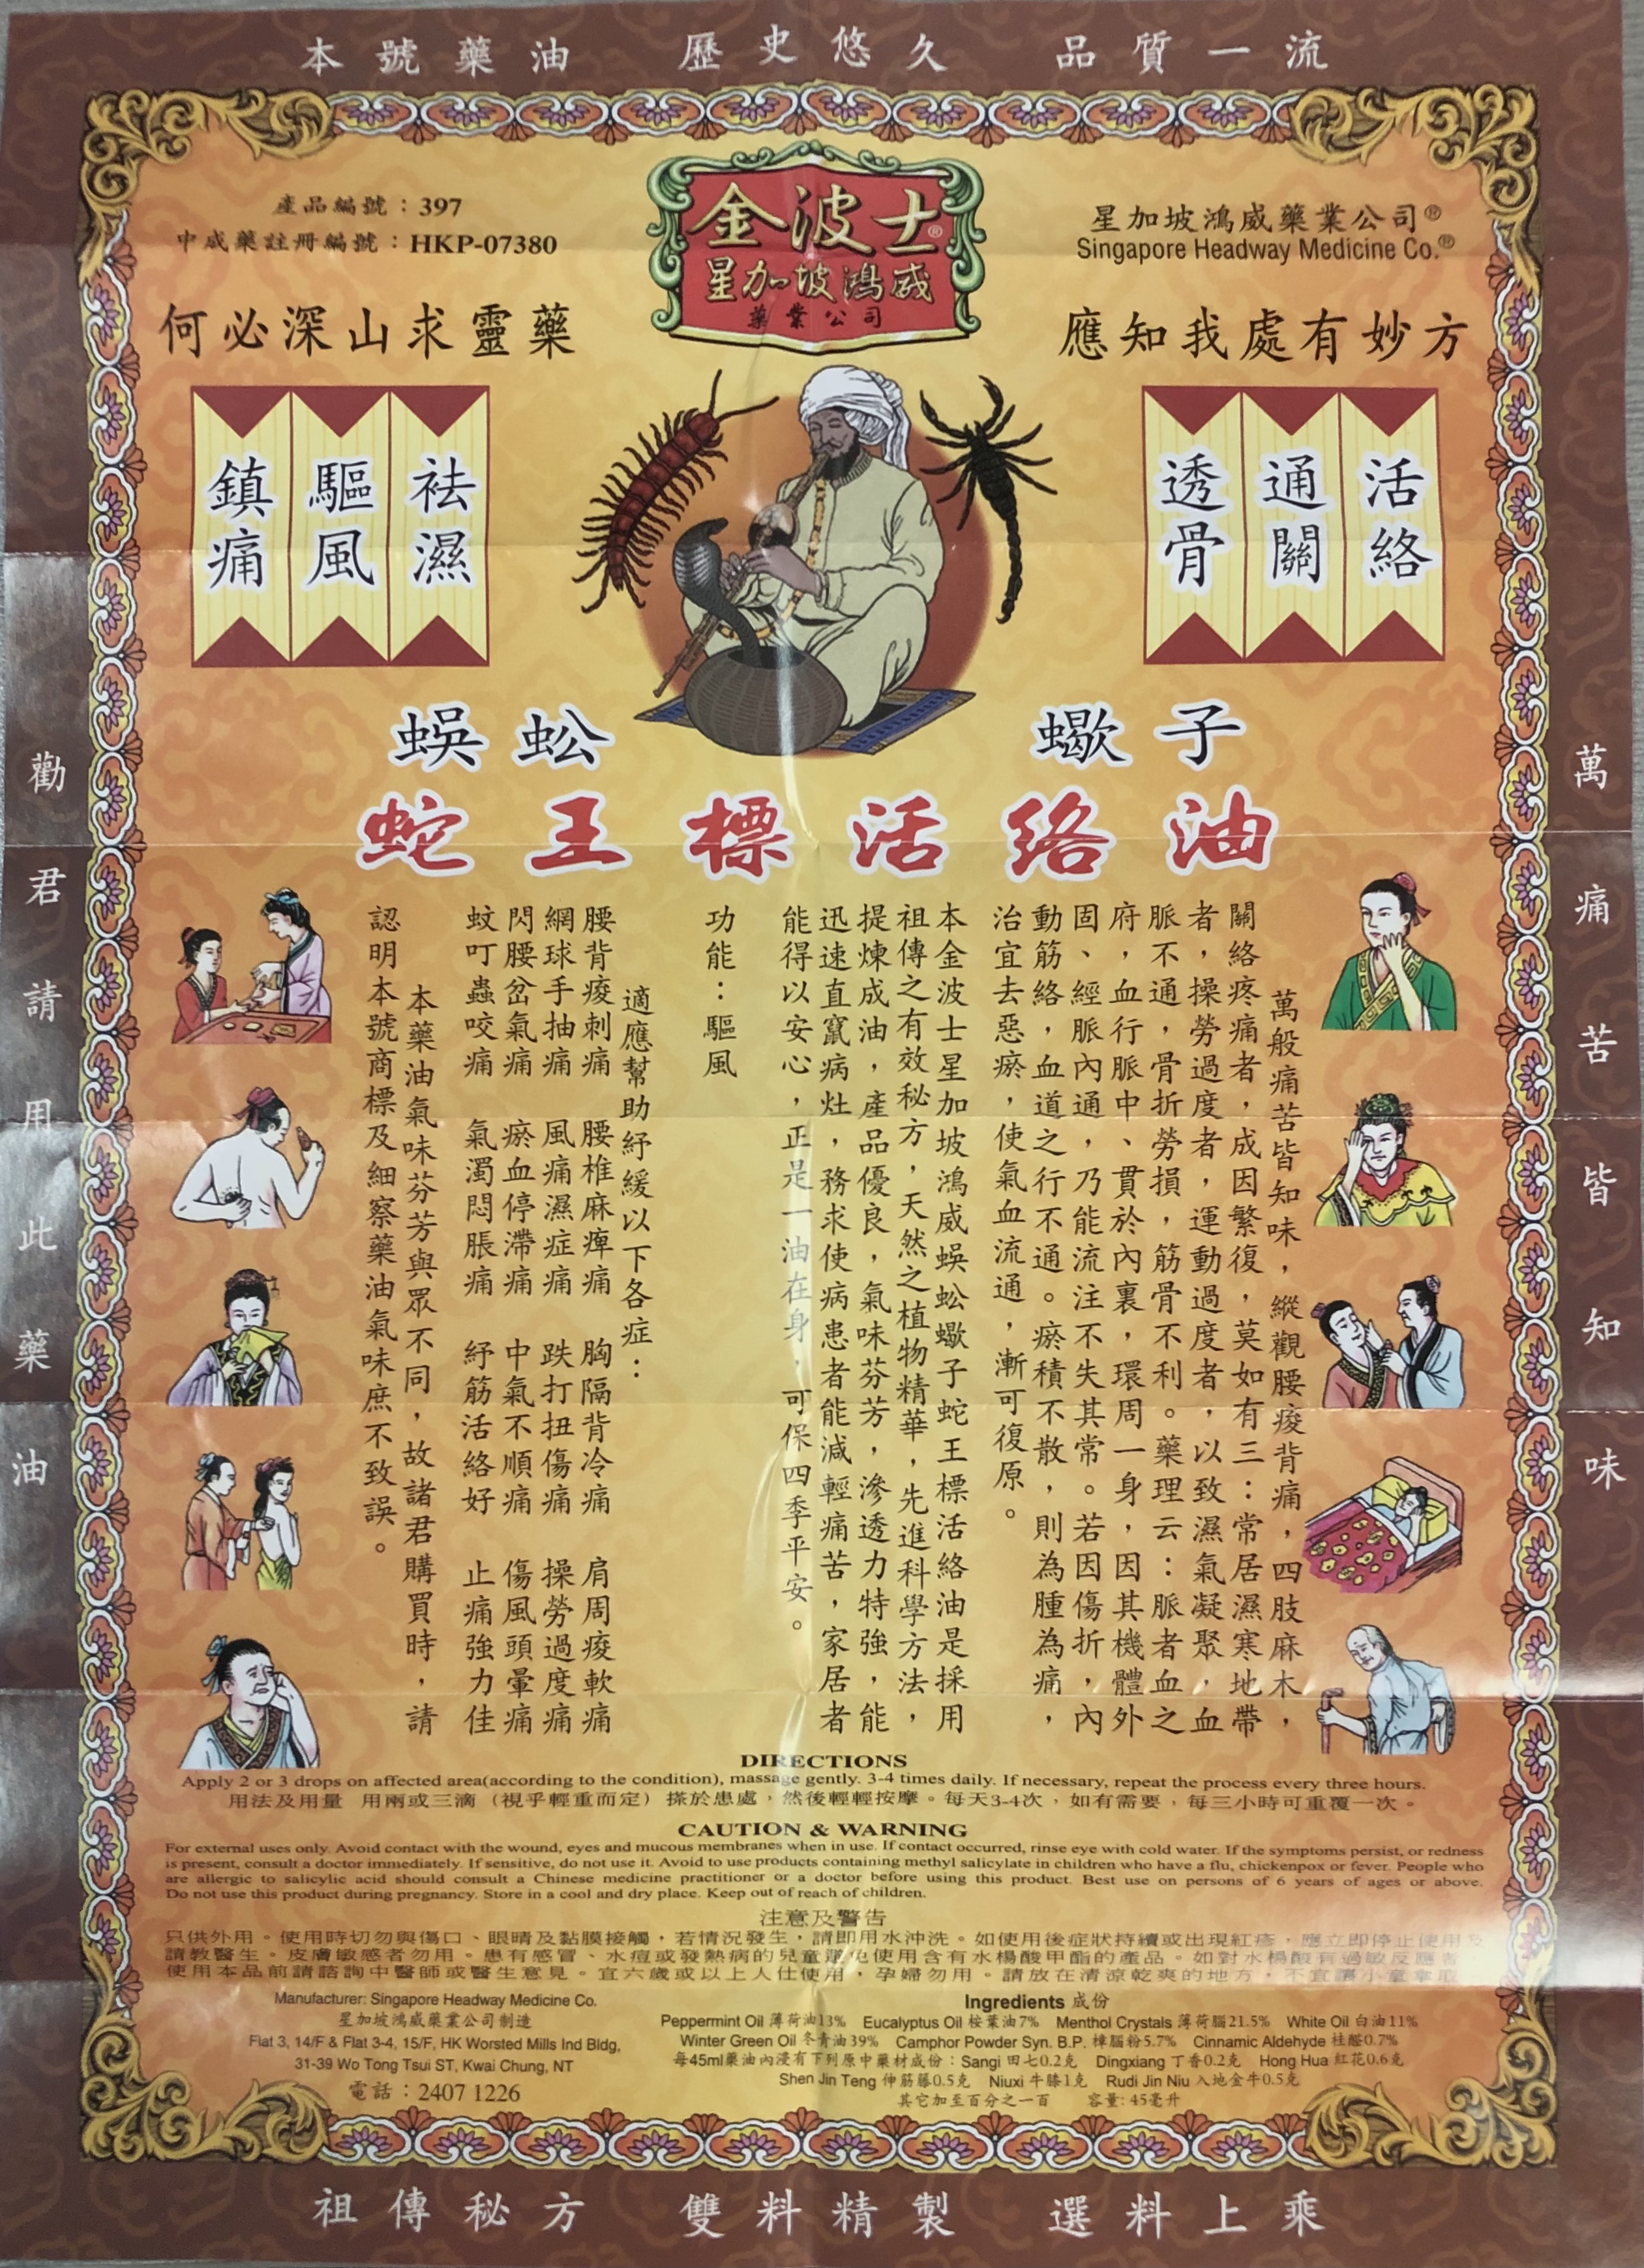 本號藥油 歷史悠久 品質一流
產品編號：397
中成藥註冊編號：HKP-07380
金波士®
星加坡鴻威
藥業公司
星加坡鴻威藥業公司®
Singapore Headway Medicine Co.®
何必深山求靈藥
應知我處有妙方
鎮痛
驅風
祛濕
透骨
通關
活絡
蜈蚣
蠍子
蛇王標活絡油
萬痛苦皆知味
勸君請用此藥油
萬般痛苦皆知味，縱觀腰痠背痛，四肢麻木，
關絡疼痛者，成因繁復，莫如有三：常居濕寒地帶
者，操勞過度者，運動過度者，以致濕氣凝聚，血
脈不通，骨折勞損，筋骨不利。藥理云：脈者血之
府，血行脈中、貫於內裏，環周一身，因其機體外
固、經脈內通，乃能流注不失其常。若因傷折，內
動筋絡，血道之行不通。瘀積不散，則為腫為痛，
治宜去惡瘀，使氣血流通，漸可復原。
本金波士星加坡鴻威蜈蚣蠍子蛇王標活絡油是採用
祖傳之有效秘方，天然之植物精華，先進科學方法，
提煉成油，產品優良，氣味芬芳，滲透力特強，能
迅速直竄病灶，務求使病患者能減輕痛苦，家居者
能得以安心，正是一油在身，可保四季平安。
功能：驅風
適應幫助紓緩以下各症：
腰背痠刺痛 腰椎麻痺痛 胸隔背冷痛 肩周痠軟痛
網球手抽痛 風痛濕症痛 跌打扭傷痛 操勞過度痛
閃腰岔氣痛 瘀血停滯痛 中氣不順痛 傷風頭暈痛
蚊叮蟲咬痛 氣濁悶脹痛 紓筋活絡好 止痛強力佳
本藥油氣味芬芳與眾不同，故諸君購買時，請
認明本號商標及細察藥油氣味庶不致誤。
DIRECTIONS
Apply 2 or 3 drops on affected area(according to the condition), massage gently. 3-4 times daily. If necessary, repeat the process every three hours.
用法及用量 用兩或三滴（視乎輕重而定）搽於患處，然後輕輕按摩。每天3-4次，如有需要，每三小時可重覆一次。
CAUTION & WARNING
For external uses only. Avoid contact with the wound, eyes and mucous membranes when in use. If contact occurred, rinse eye with cold water. If the symptoms persist, or redness
is present, consult a doctor immediately. If sensitive, do not use it. Avoid to use products containing methyl salicylate in children who have a flu, chickenpox or fever. People who
are allergic to salicylic acid should consult a Chinese medicine practitioner or a doctor before using this product. Best use on persons of 6 years of ages or above.
Do not use this product during pregnancy. Store in a cool and dry place. Keep out of reach of children.
注意及警告
只供外用。使用時切勿與傷口、眼睛及黏膜接觸，若情況發生，請即用水沖洗。如使用後症狀持續或出現紅疹，應立即停止使用及
請教醫生。皮膚敏感者勿用。患有感冒、水痘或發熱病的兒童避免使用含有水楊酸甲酯的產品。如對水楊酸有過敏反應者
使用本品前請諮詢中醫師或醫生意見。宜六歲或以上人仕使用，孕婦勿用。請放在清涼乾爽的地方，不宜讓小童拿取
Manufacturer: Singapore Headway Medicine Co.
星加坡鴻威藥業公司制造
Flat 3, 14/F & Flat 3-4, 15/F, HK Worsted Mills Ind Bldg,
31-39 Wo Tong Tsui ST, Kwai Chung, NT
電話：2407 1226
Ingredients 成份
Peppermint Oil 薄荷油13% Eucalyptus Oil 桉葉油7% Menthol Crystals 薄荷腦21.5% White Oil 白油11%
Winter Green Oil 冬青油39% Camphor Powder Syn. B.P. 樟腦粉5.7% Cinnamic Aldehyde 桂醛0.7%
每45ml藥油內浸有下列原中藥材成份：Sangi 田七0.2克 Dingxiang 丁香0.2克 Hong Hua 紅花0.6克
Shen Jin Teng 伸筋藤0.5克 Niuxi 牛膝1克 Rudi Jin Niu 入地金牛0.5克
其它加至百分之一百 容量: 45毫升
祖傳秘方 雙料精製 選料上乘